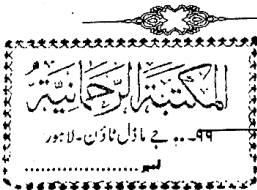 المكتبة الرحمانية
۹۹ـ... جے ماڈل ٹاؤن۔ لاہور
نمبر....................